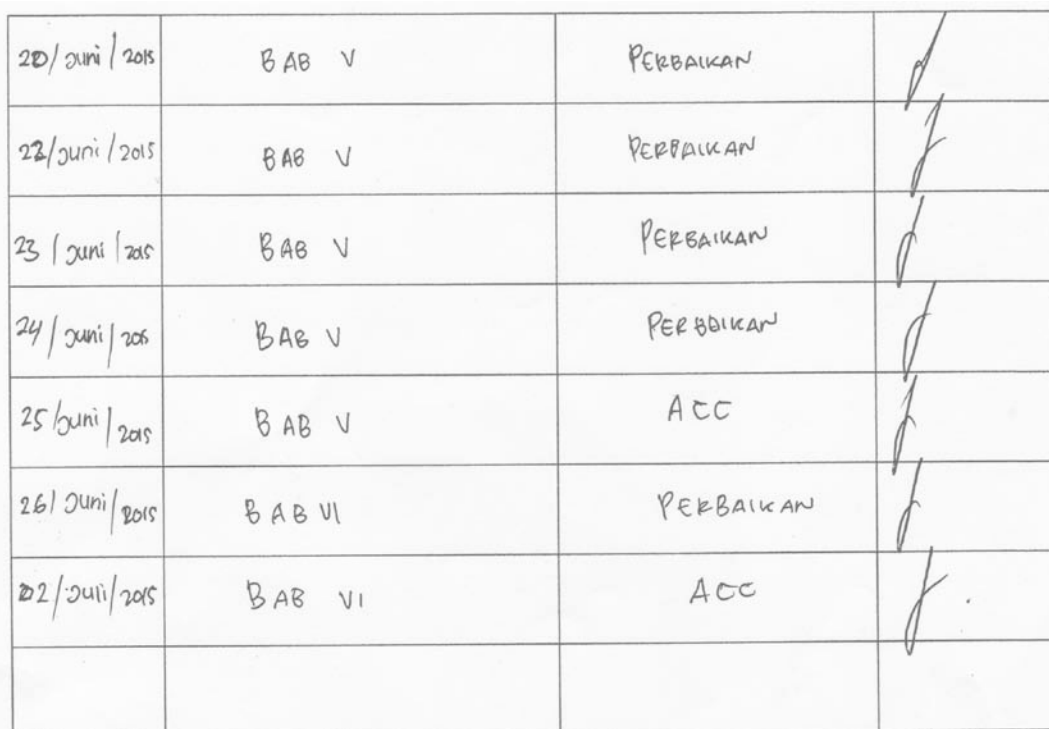 20/Juni/2015 BAB V PERBAIKAN
22/Juni/2015 BAB V PERBAIKAN
23/Juni/2015 BAB V PERBAIKAN
24/Juni/2015 BAB V PERBAIKAN
25/Juni/2015 BAB V ACC
26/Juni/2015 BAB VI PERBAIKAN
02/Juli/2015 BAB VI ACC